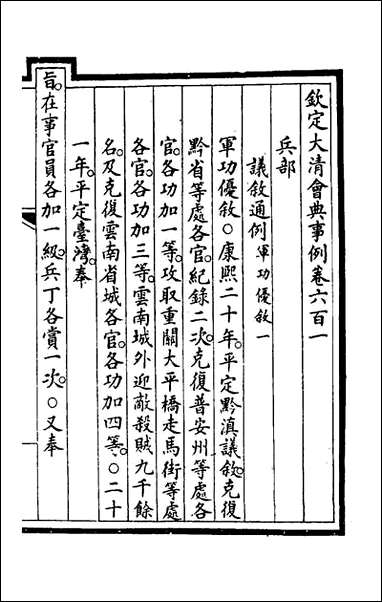 欽定大清會典事例卷六百一
兵部
議敘通例軍功優敘一
軍功優敘○康熙二十年。平定黔滇議敘。克復
黔省等處各官。紀錄二次。克復普安州等處各
官。各功加一等。攻取重關大平橋走馬街等處
各官。各功加三等。雲南城外迎敵殺賊九千餘
名。及克復雲南省城各官。各功加四等。○二十
一年。平定臺灣。奉
旨。在事官員各加一級。兵丁各賞一次。○又奉